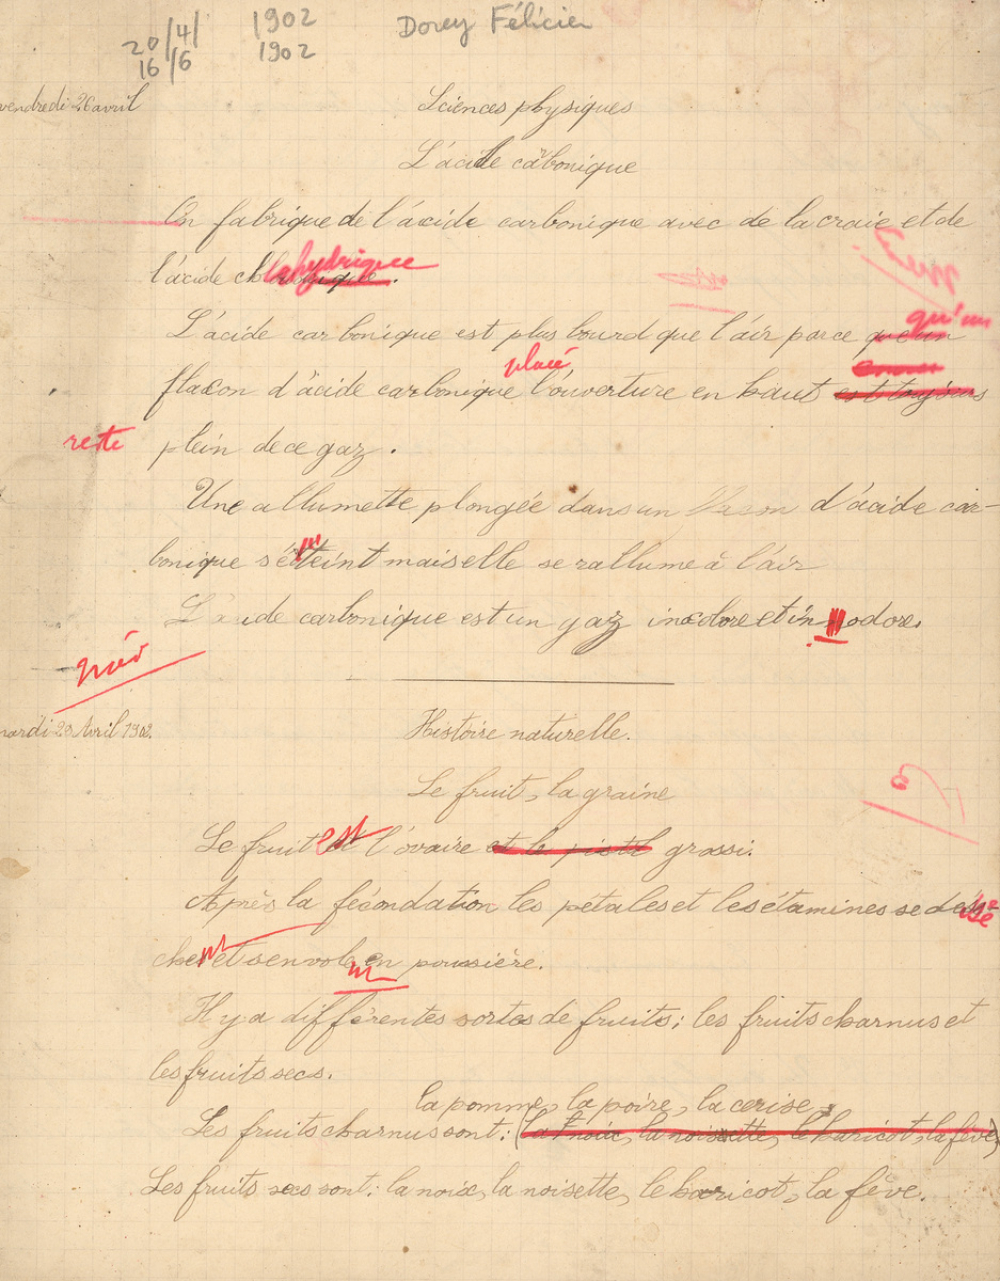 20/4/ 1902 Dorey Félicien
16/6 1902
vendredi 26 avril Sciences physiques
L'acide carbonique
On fabrique de l'acide carbonique avec de la craie et de
l'acide chlorhydrique.
qu'un
L'acide carbonique est plus lourd que l'air parce que un
placé
flacon d'acide carbonique l'ouverture en haut est toujours
reste plein de ce gaz.
Une allumette plongée dans un flacon d'acide car-
bonique s'éteint mais elle se rallume à l'air
L'acide carbonique est un gaz incolore et innodore.
mardi 29 Avril 1902. Histoire naturelle.
Le fruit, la graine
Le fruit est l'ovaire et le pistil grossi.
Après la fécondation les pétales et les étamines se dessè
chent et s'envolent en poussière.
Il y a différentes sortes de fruits; les fruits charnus et
les fruits secs.
la pomme, la poire, la cerise,
Les fruits charnus sont: (la noix, la noisette, le haricot, la fève)
Les fruits secs sont: la noix, la noisette, le haricot, la fève.